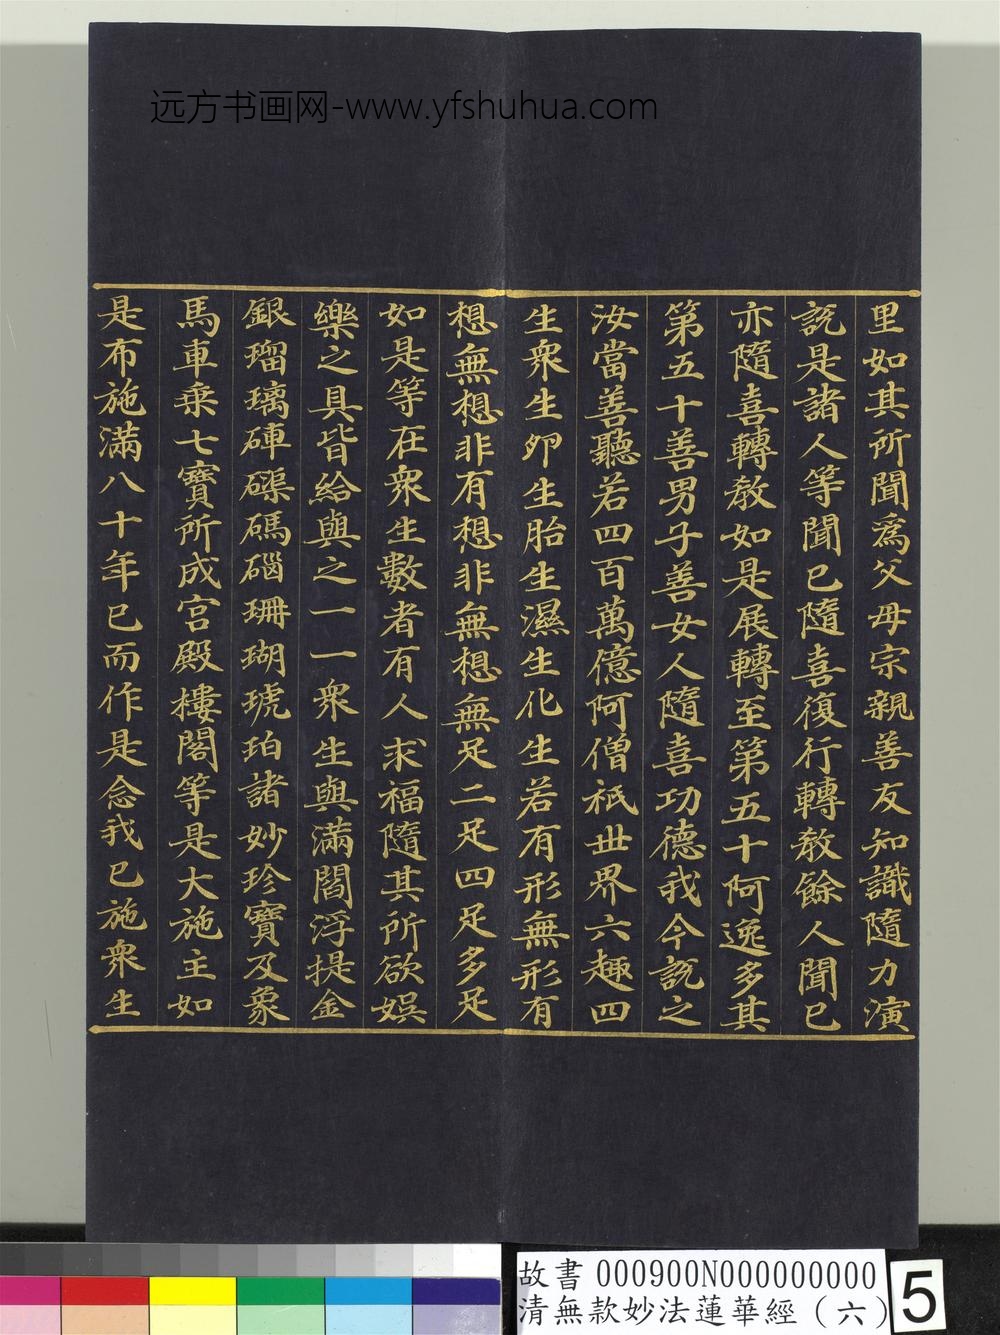 远方书画网-www.yfshuhua.com
里如其所聞為父母宗親善友知識隨力演
說是諸人等聞已隨喜復行轉教餘人聞已
亦隨喜轉教如是展轉至第五十阿逸多其
第五十善男子善女人隨喜功德我今說之
汝當善聽若四百萬億阿僧祇世界六趣四
生衆生卵生胎生濕生化生若有形無形有
想無想非有想非無想無足二足四足多足
如是等在衆生數者有人求福隨其所欲娛
樂之具皆給與之一一衆生與滿閻浮提金
銀瑠璃硨磲碼碯珊瑚琥珀諸妙珍寶及象
馬車乗七寶所成宮殿樓閣等是大施主如
是布施滿八十年已而作是念我已施衆生
故書 000900N000000000
清無款妙法蓮華經（六）
5